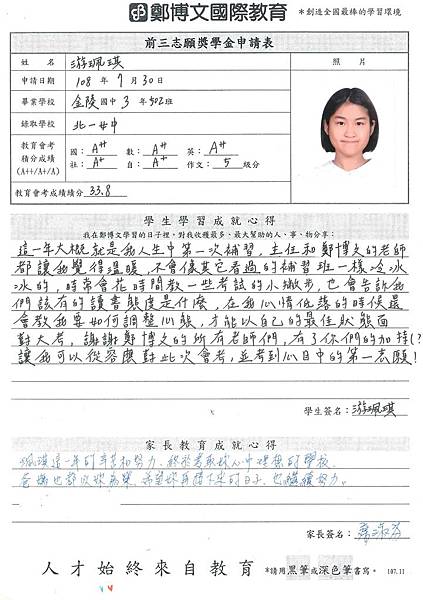 鄭博文國際教育 *創造全國最棒的學習環境
前三志願獎學金申請表
姓 名 游珮琪 照 片
申請日期 108 年 7 月 30 日
畢業學校 金陵 國中 3 年 502班
錄取學校 北一女中
教育會考 國：A++ 數：A++ 英：A++
積分成績
(A++/A+/A) 社：A+ 自：A+ 作文：5 級分
教育會考成績積分 33.8
學生學習成就心得
我在鄭博文學習的日子裡，對我收穫最多、最大幫助的人、事、物分享：
這一年大概就是我人生中第一次補習，主任和鄭博文的老師
都讓我覺得溫暖，不會像其它看過的補習班一樣冷冰
冰的，時常會花時間教一些考試的小撇步，也會告訴我
們該有的讀書態度是什麼，在我心情低落的時候還
會教我要如何調整心態，才能以自己的最佳狀態面
對大考，謝謝鄭博文的所有老師們，有了你們的加持(?
讓我可以從容應對此次會考，並考到心目中的第一志願！
學生簽名：游珮琪
家長教育成就心得
珮琪這一年的辛苦和努力，終於考取妳心中理想的學校，
爸媽也都以妳為榮，希望妳再接下來的日子，也繼續努力。
家長簽名：
人才始終來自教育 *請用黑筆或深色筆書寫。 107.11